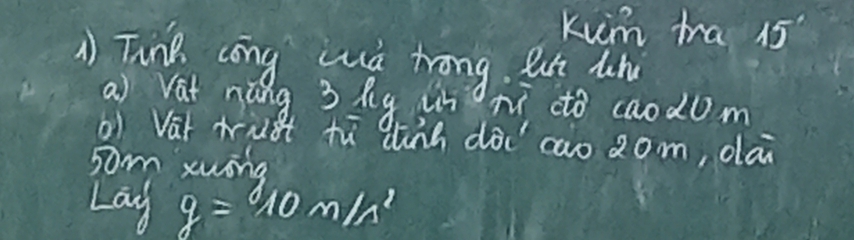 Kiểm tra 15'
1) Tính công của trọng lực khi
a) Vật nặng 3 kg rơi từ độ cao 20 m
b) Vật trượt từ đỉnh dốc cao 20m, dài
50m xuống
Lấy g = 10 m/s²